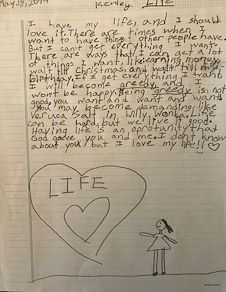 May 18, 2014 Keenley Life
I have my life, and I should
love it. There are times when I
want to have things other people have.
But I can't get everything I want.
There are ways that I can get a lot
of things I want, like earning money,
wait till Christmas, and wait till my
birthday. If I get everything I want
I will become greedy, and I
wont be happy. Being greedy is not
good, you want and want and want.
You may become demanding like
Veruca Salt in Willy Wonka. Life
can be hard, but we live it good.
Having life is an oprotunity that
God gave you and me. I don't know
about you but I love my life!!
LIFE